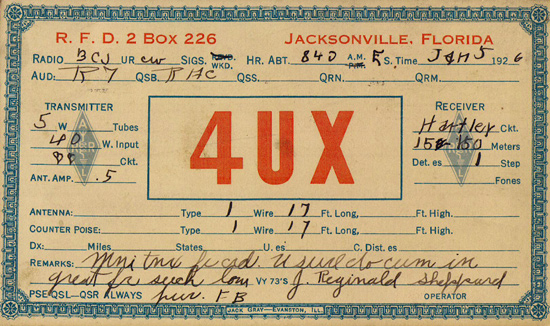 R. F. D. 2 Box 226 Jacksonville, Florida
Radio BCJ UR CW Sigs. Rcvd. Wkd. Hr. Abt. 840 A.M. P.M. E.S. Time Jan 5 1926
Aud: R 7 QSB. R AC QSS. QRN. QRM.
Transmitter
5 W Tubes
40 W. Input
Ckt.
Ant. Amp. .5
4UX
Receiver
Hartley Ckt.
150 Meters
Det. es 1 Step
Fones
Antenna: Type 1 Wire 17 Ft. Long, Ft. High.
Counter Poise: Type 1 Wire 17 Ft. Long, Ft. High.
Dx: Miles, States, U. es C. Dist. es
Remarks: Mni tnx fr crd. U sure do cum in
great fr such low
pwr. FB
Vy 73's J. Reginald Sheppard
PSE QSL - QSR Always Operator
Jack Gray—Evanston, Ill.